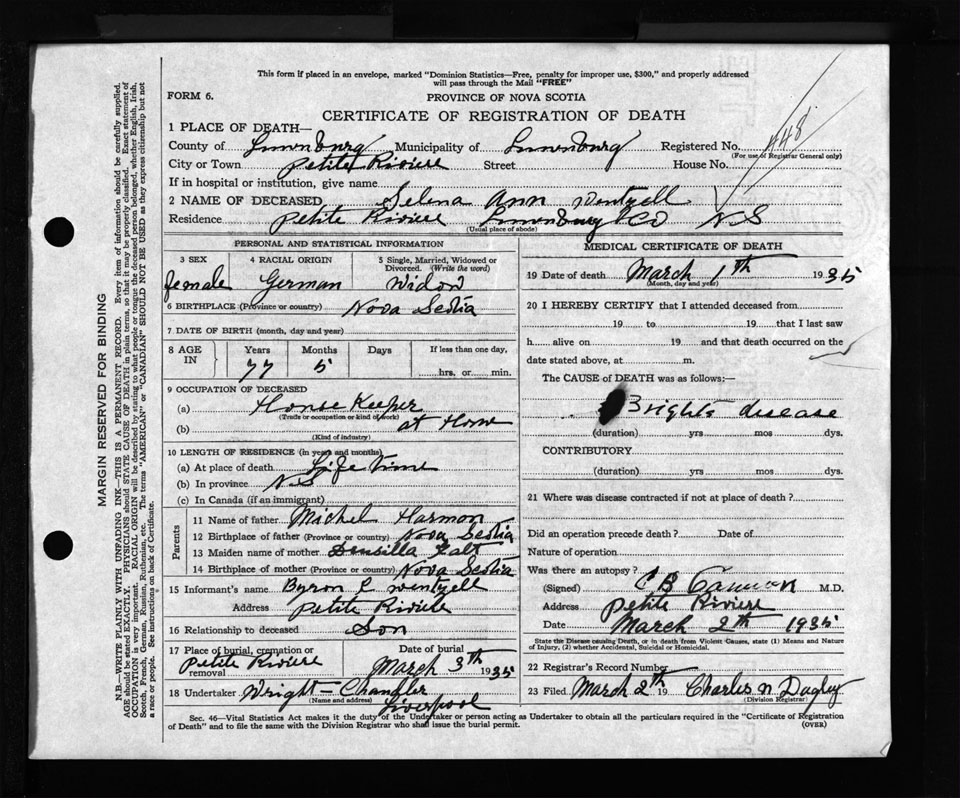 This form if placed in an envelope, marked "Dominion Statistics—Free, penalty for improper use, $300," and properly addressed
will pass through the Mail "FREE"
FORM 6.
PROVINCE OF NOVA SCOTIA
CERTIFICATE OF REGISTRATION OF DEATH
1 PLACE OF DEATH—
County of Lunenburg Municipality of Lunenburg Registered No. 448
(For use of Registrar General only)
City or Town Petite Riviere Street House No.
If in hospital or institution, give name
2 NAME OF DECEASED Selena Ann Wentzell
Residence Petite Riviere Lunenburg Co N S
(Usual place of abode)
PERSONAL AND STATISTICAL INFORMATION
3 SEX 4 RACIAL ORIGIN 5 Single, Married, Widowed or
Divorced. (Write the word)
female German Widow
6 BIRTHPLACE (Province or country) Nova Scotia
7 DATE OF BIRTH (month, day and year)
8 AGE IN Years Months Days If less than one day,
77 5 hrs. or min.
9 OCCUPATION OF DECEASED
(a) House Keeper
(Trade or occupation or kind of work)
(b) at Home
(Kind of industry)
10 LENGTH OF RESIDENCE (in years and months)
(a) At place of death Life Time
(b) In province N S
(c) In Canada (if an immigrant)
Parents
11 Name of father Michel Harmon
12 Birthplace of father (Province or country) Nova Scotia
13 Maiden name of mother
14 Birthplace of mother (Province or country) Nova Scotia
15 Informant's name Byron E Wentzell
Address Petite Riviere
16 Relationship to deceased Son
17 Place of burial, cremation or removal Date of burial
Petite Riviere March 3th 1935
18 Undertaker Wright-Chandler
(Name and address) Liverpool
MEDICAL CERTIFICATE OF DEATH
19 Date of death March 1th 1935
(Month, day and year)
20 I HEREBY CERTIFY that I attended deceased from
19 to 19 that I last saw
h alive on 19 and that death occurred on the
date stated above, at m.
The CAUSE of DEATH was as follows:—
Brights disease
(duration) yrs mos dys.
CONTRIBUTORY
(duration) yrs mos dys.
21 Where was disease contracted if not at place of death?
Did an operation precede death? Date of
Nature of operation
Was there an autopsy?
(Signed) C B M.D.
Address Petite Riviere
Date March 2th 1935
State the Disease causing Death, or in death from Violent Causes, state (1) Means and Nature
of Injury, (2) whether Accidental, Suicidal or Homicidal.
22 Registrar's Record Number
23 Filed March 2th 19 Charles N
(Division Registrar)
Sec. 46—Vital Statistics Act makes it the duty of the Undertaker or person acting as Undertaker to obtain all the particulars required in the "Certificate of Registration
of Death" and to file the same with the Division Registrar who shall issue the burial permit. (OVER)
MARGIN RESERVED FOR BINDING
N.B.—WRITE PLAINLY WITH UNFADING INK—THIS IS A PERMANENT RECORD. Every item of information should be carefully supplied.
AGE should be stated EXACTLY. PHYSICIANS should STATE CAUSE OF DEATH in plain terms, so that it may be properly classified. Exact statement of
OCCUPATION is very important. RACIAL ORIGIN will be described by stating to what people or tongue the deceased person belonged, whether English, Irish,
Scotch, French, German, Russian, Ruthenian, etc. The terms "AMERICAN" or "CANADIAN" SHOULD NOT BE USED as they express citizenship but not
a race or people. See instructions on back of Certificate.